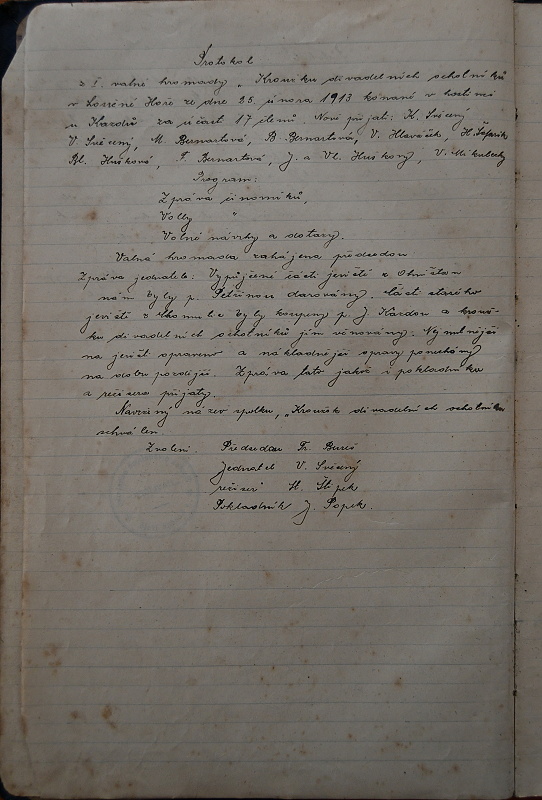 Protokol
z I. valné hromady „Kroužku divadelních ochotníků
v Lesné Hoře ze dne 25. února 1913 konané v hostinci
u Kazdů za účasti 17 členů. Nově přijati: K. Svěcený
V. Svěcený, M. Bernartová, B. Bernartová, V. Hlaváček, H. Šafařík
Bl. Hušková, F. Bernartová, J. a Vl. Huškový, V. Mikulecký
Program:
Zpráva činovníků,
Volby „
Volné návrhy a dotazy.
Valná hromada zahájena předsedou
Zpráva jednatele: Vypůjčené části jeviště z
nám byly p. darovány. Části starého
jeviště z byly koupeny p. J. Kazdou a krouž-
ku divadelních ochotníků jím věnovány. Nejnutnější
na jevišti opraveno a nákladnější opravy ponechány
na dobu pozdější. Zpráva tato jakož i pokladníka
a režiséra přijaty.
Navržený název spolku, „Kroužek divadelních ochotníků
schválen.
Zvoleni: Předsedou Fr. Bureš
Jednatel V. Svěcený
režisér H. Štípek
Pokladník J. Popek.